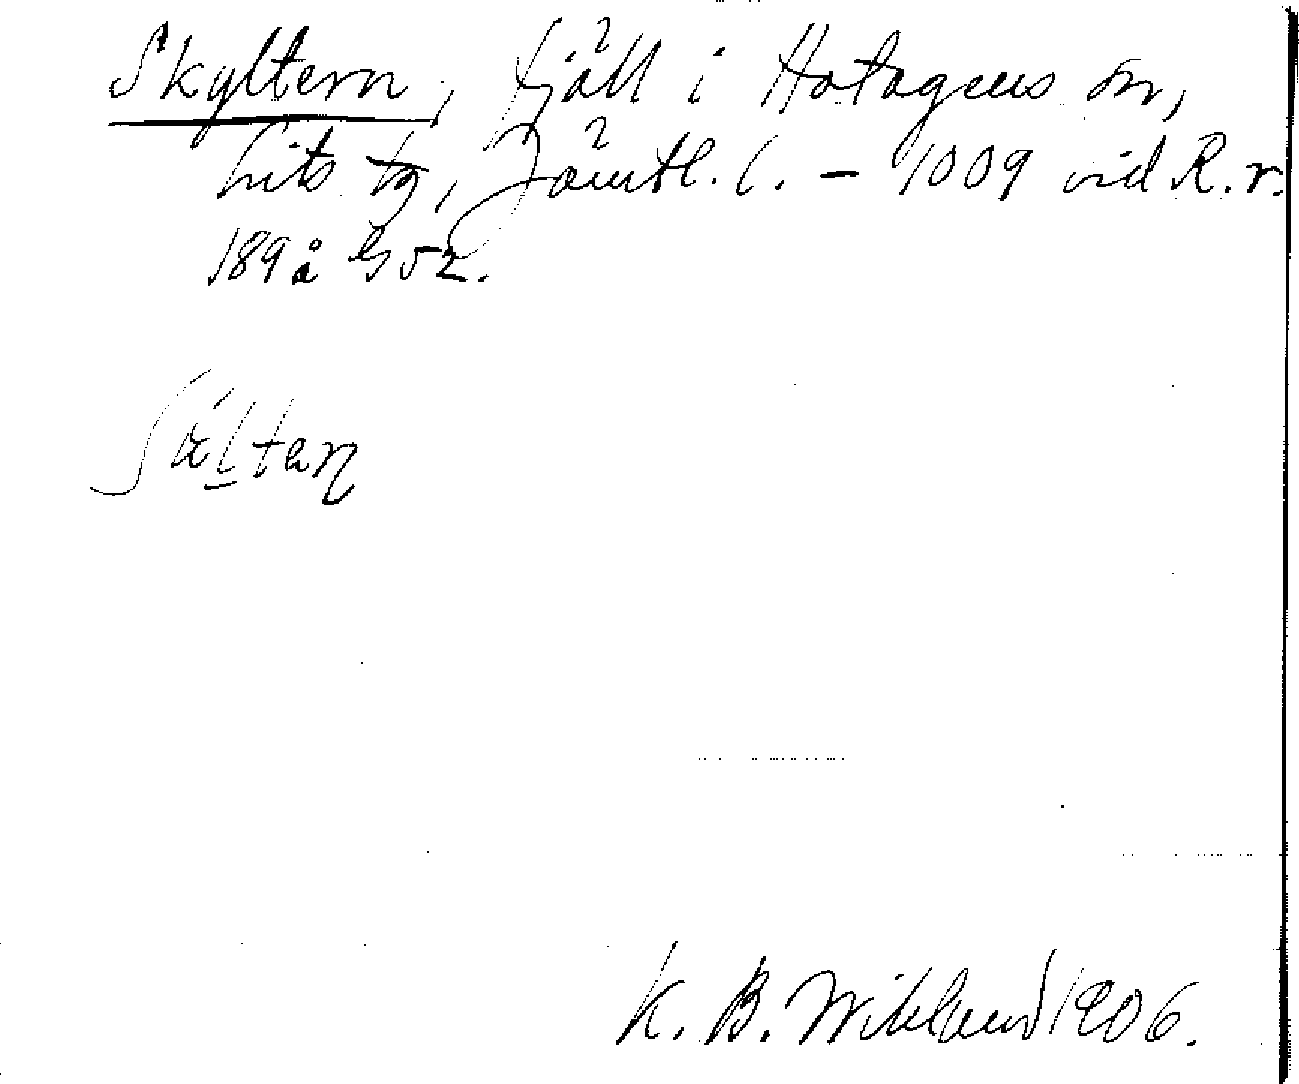 Skyltern, fjäll i Hotagens sn,
Lits tg, Jämtl. l. – 1009 vid R.r.
189 å G5z.
K. B. Wiklund 1906.